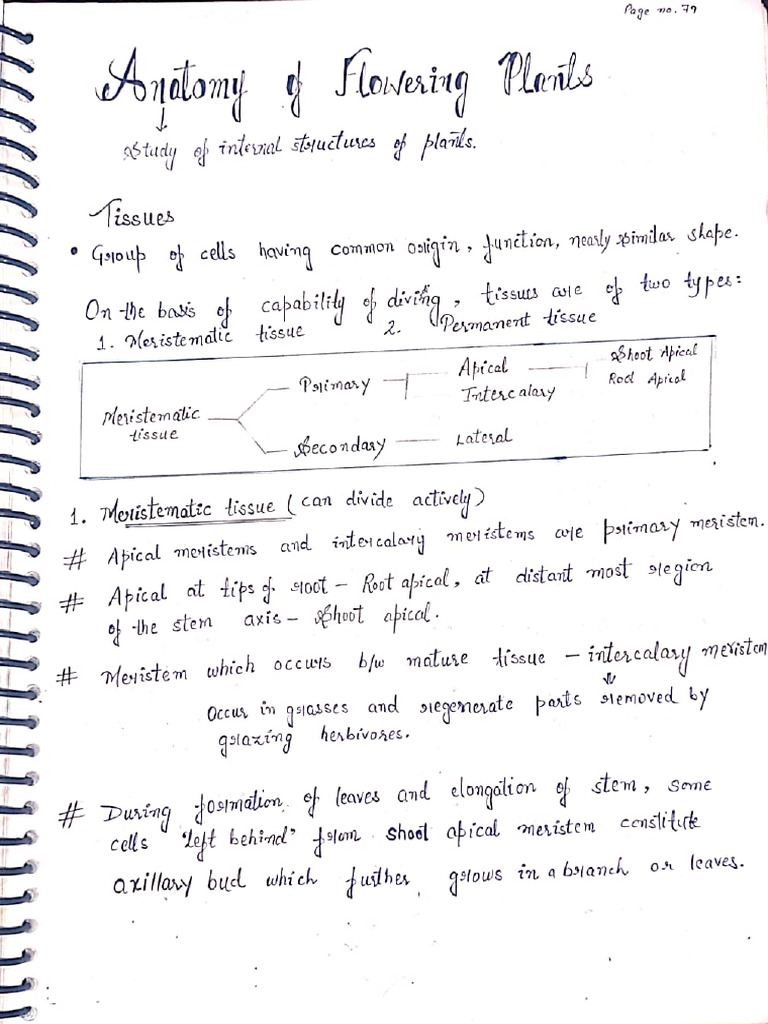 Page no. 79
Anatomy of Flowering Plants
↓
Study of internal structures of plants.
Tissues
• Group of cells having common origin, function, nearly similar shape.
On the basis of capability of diving, tissues are of two types:
1. Meristematic tissue 2. Permanent tissue
Meristematic tissue
Primary
Apical
Intercalary
Shoot Apical
Root Apical
Secondary
Lateral
1. Meristematic tissue (can divide actively)
# Apical meristems and intercalary meristems are primary meristem.
# Apical at tips of root – Root apical, at distant most region
of the stem axis – Shoot apical.
# Meristem which occurs b/w mature tissue – intercalary meristem
Occur in grasses and regenerate parts removed by
grazing herbivores.
# During formation of leaves and elongation of stem, some
cells 'left behind' from shoot apical meristem constitute
axillary bud which further grows in a branch or leaves.